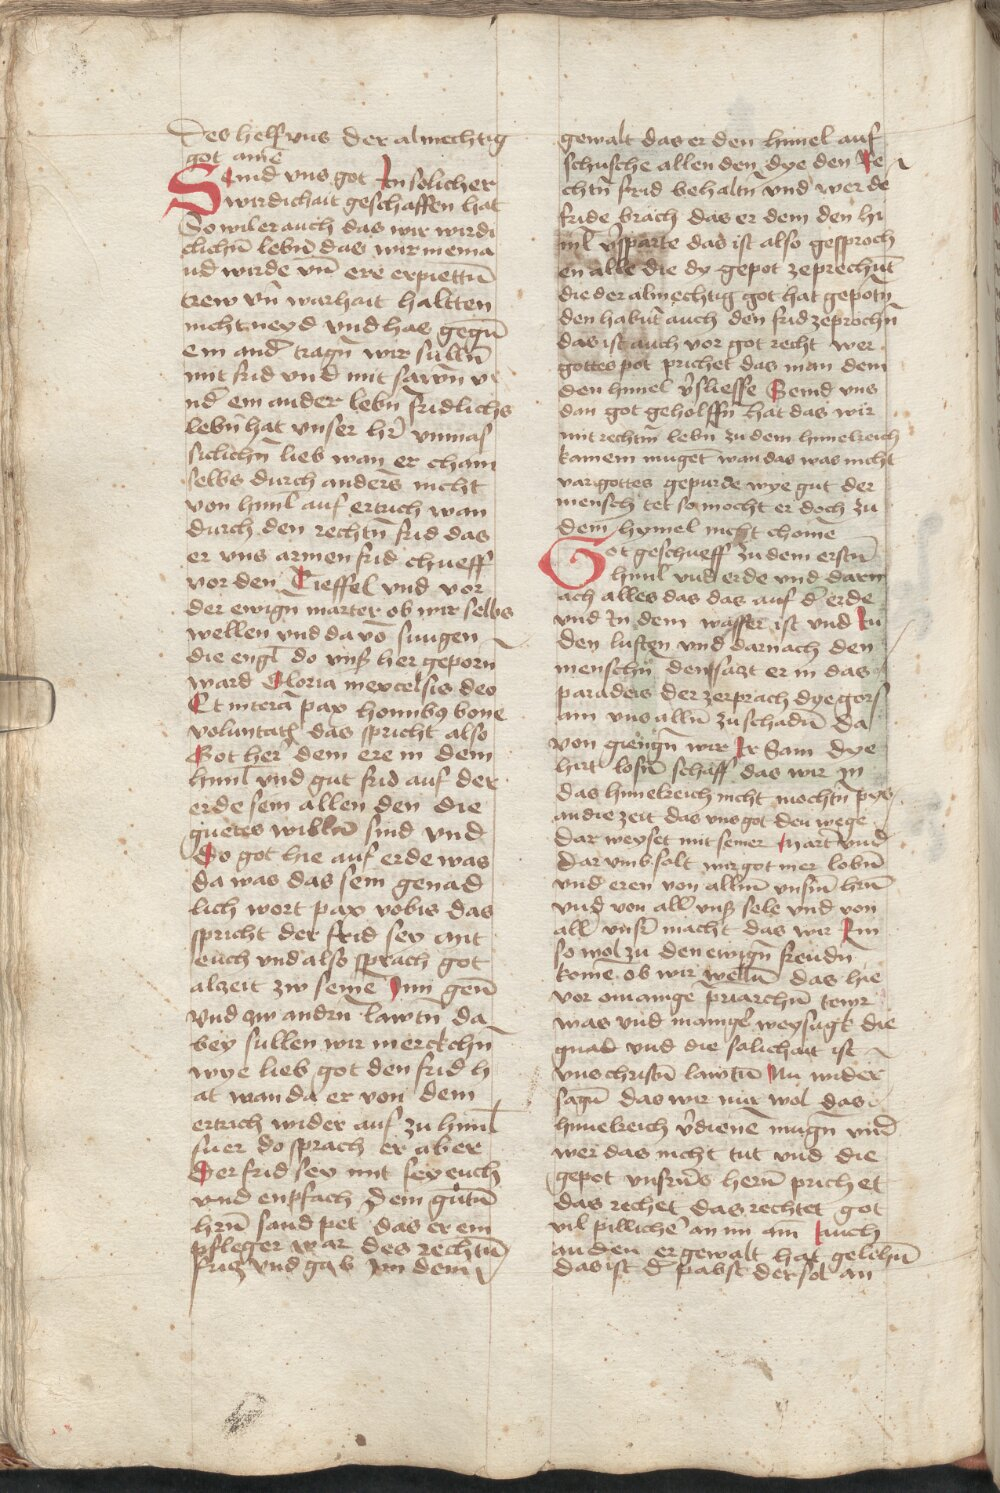 Des helf vns der almechtig
got amē
Seind vns got In solicher
wirdichait geschaffen hat
So wil er auch das wir wirdi
clichn̄ lebn̄ das wir niema
nd wirde vn̄ ere erpiettn̄
trew vn̄ warhait haltten
nicht neyd vnd has gegn̄
ein and' tragn̄ wir sulln̄
mit frid vnd mit sawn̄ v
nd' ein ander lebn̄ fridlichs
lebn̄ hat vnser hr̄ vnmas
siclichn̄ lieb wan er cham
selbs durch anders nicht
von himl auf ertrich wan
durch den rechtn̄ frid das
er vns armen frid chueff
vor den Tieffel vnd vor
der ewign̄ marter ob wir selbs
wellen vnd da vō sungen
die engl do vnß her geporn̄
ward Gloria in excelsis deo
Et in terra pax hominibꝫ bone
voluntatꝭ das spricht also
Got her dem ere in dem
himl vnd gut frid auf der
erde sein allen den die
guetes willn̄ sind vnd
Do got hie auf erde was
da was das sein genad
lich wort pax vobis das
spricht der frid sey mit
euch vnd also sprach got
alzeit zw seinē Jungn̄
vnd zw andrn̄ lawtn̄ da
bey sullen wir merckchn̄
wye lieb got den frid h
at wan da er von dem
ertrich wider auf zu himl
fuer do sprach er aber
Der frid sey mit sey euch
vnd enpfach dem gutn̄
hrn̄ sand pet' das er ein
pfleger war des rechtn̄
fridꝫ vnd gab Im den
gewalt das er den himel auf
schusche allen den dye den Re
chtn̄ frid behaltn̄ vnd wer de
fride brach das er dem den hi
ml v'sparte das ist also gesproch
en alle die dy gepot zeprechn̄t
die der almechtig got hat gepotn̄
den habn̄t auch den frid zeprochn̄
das ist auch vor got recht wer
gottes pot prichet das man dem
den himel v'sliesse Seind vns
dan got geholffn̄ hat das wir
mit rechtm̄ lebn̄ zu dem himelreich
kamem muget wan das was nicht
var gottes gepurde wye gut der
mensch tet so mocht er doch zu
dem hymel nicht chome
Got geschueff zu dem erstn̄
himl vnd erde vnd darn
ach alles das das auf d' erde
vnd In dem wasser ist vnd In
den luften vnd darnach den
menschn̄ den sazt er in das
paradeis der zerprach dye gors
am vns alln̄ zu schadn̄ da
von giengn̄ wir Ir Sam dye
hirt losn̄ schaff das wir In
das himelreich nicht mochtn̄ pys
an die zeit das vns got den wege
dar weyset mit seiner Martr' vnd
dar vmb solt wir got iner lobn̄
vnd eren von allm̄ vnsm̄ hrn̄
vnd von all' vnß sele vnd von
all' vnsr' macht das wir Im
so wol zu den ewign̄ freudn̄
kome ob wir welln̄ das hie
vor maniger priarchn̄ tewr
was vnd manige' weysagꝭ die
gnad vnd die salichait ist
vns christn̄ lawtn̄ Nu wider
sagn̄ das wir nur wol das
himelreich v'dienē mugn̄ vnd'
wer das nicht tut vnd die
gepot vnsrn̄s hern̄ prichet
das rechet das rechtet got
vil pilliche' an im am̄ Auch
an den er gewalt hat gelihn̄
das ist d' pabst der sol an